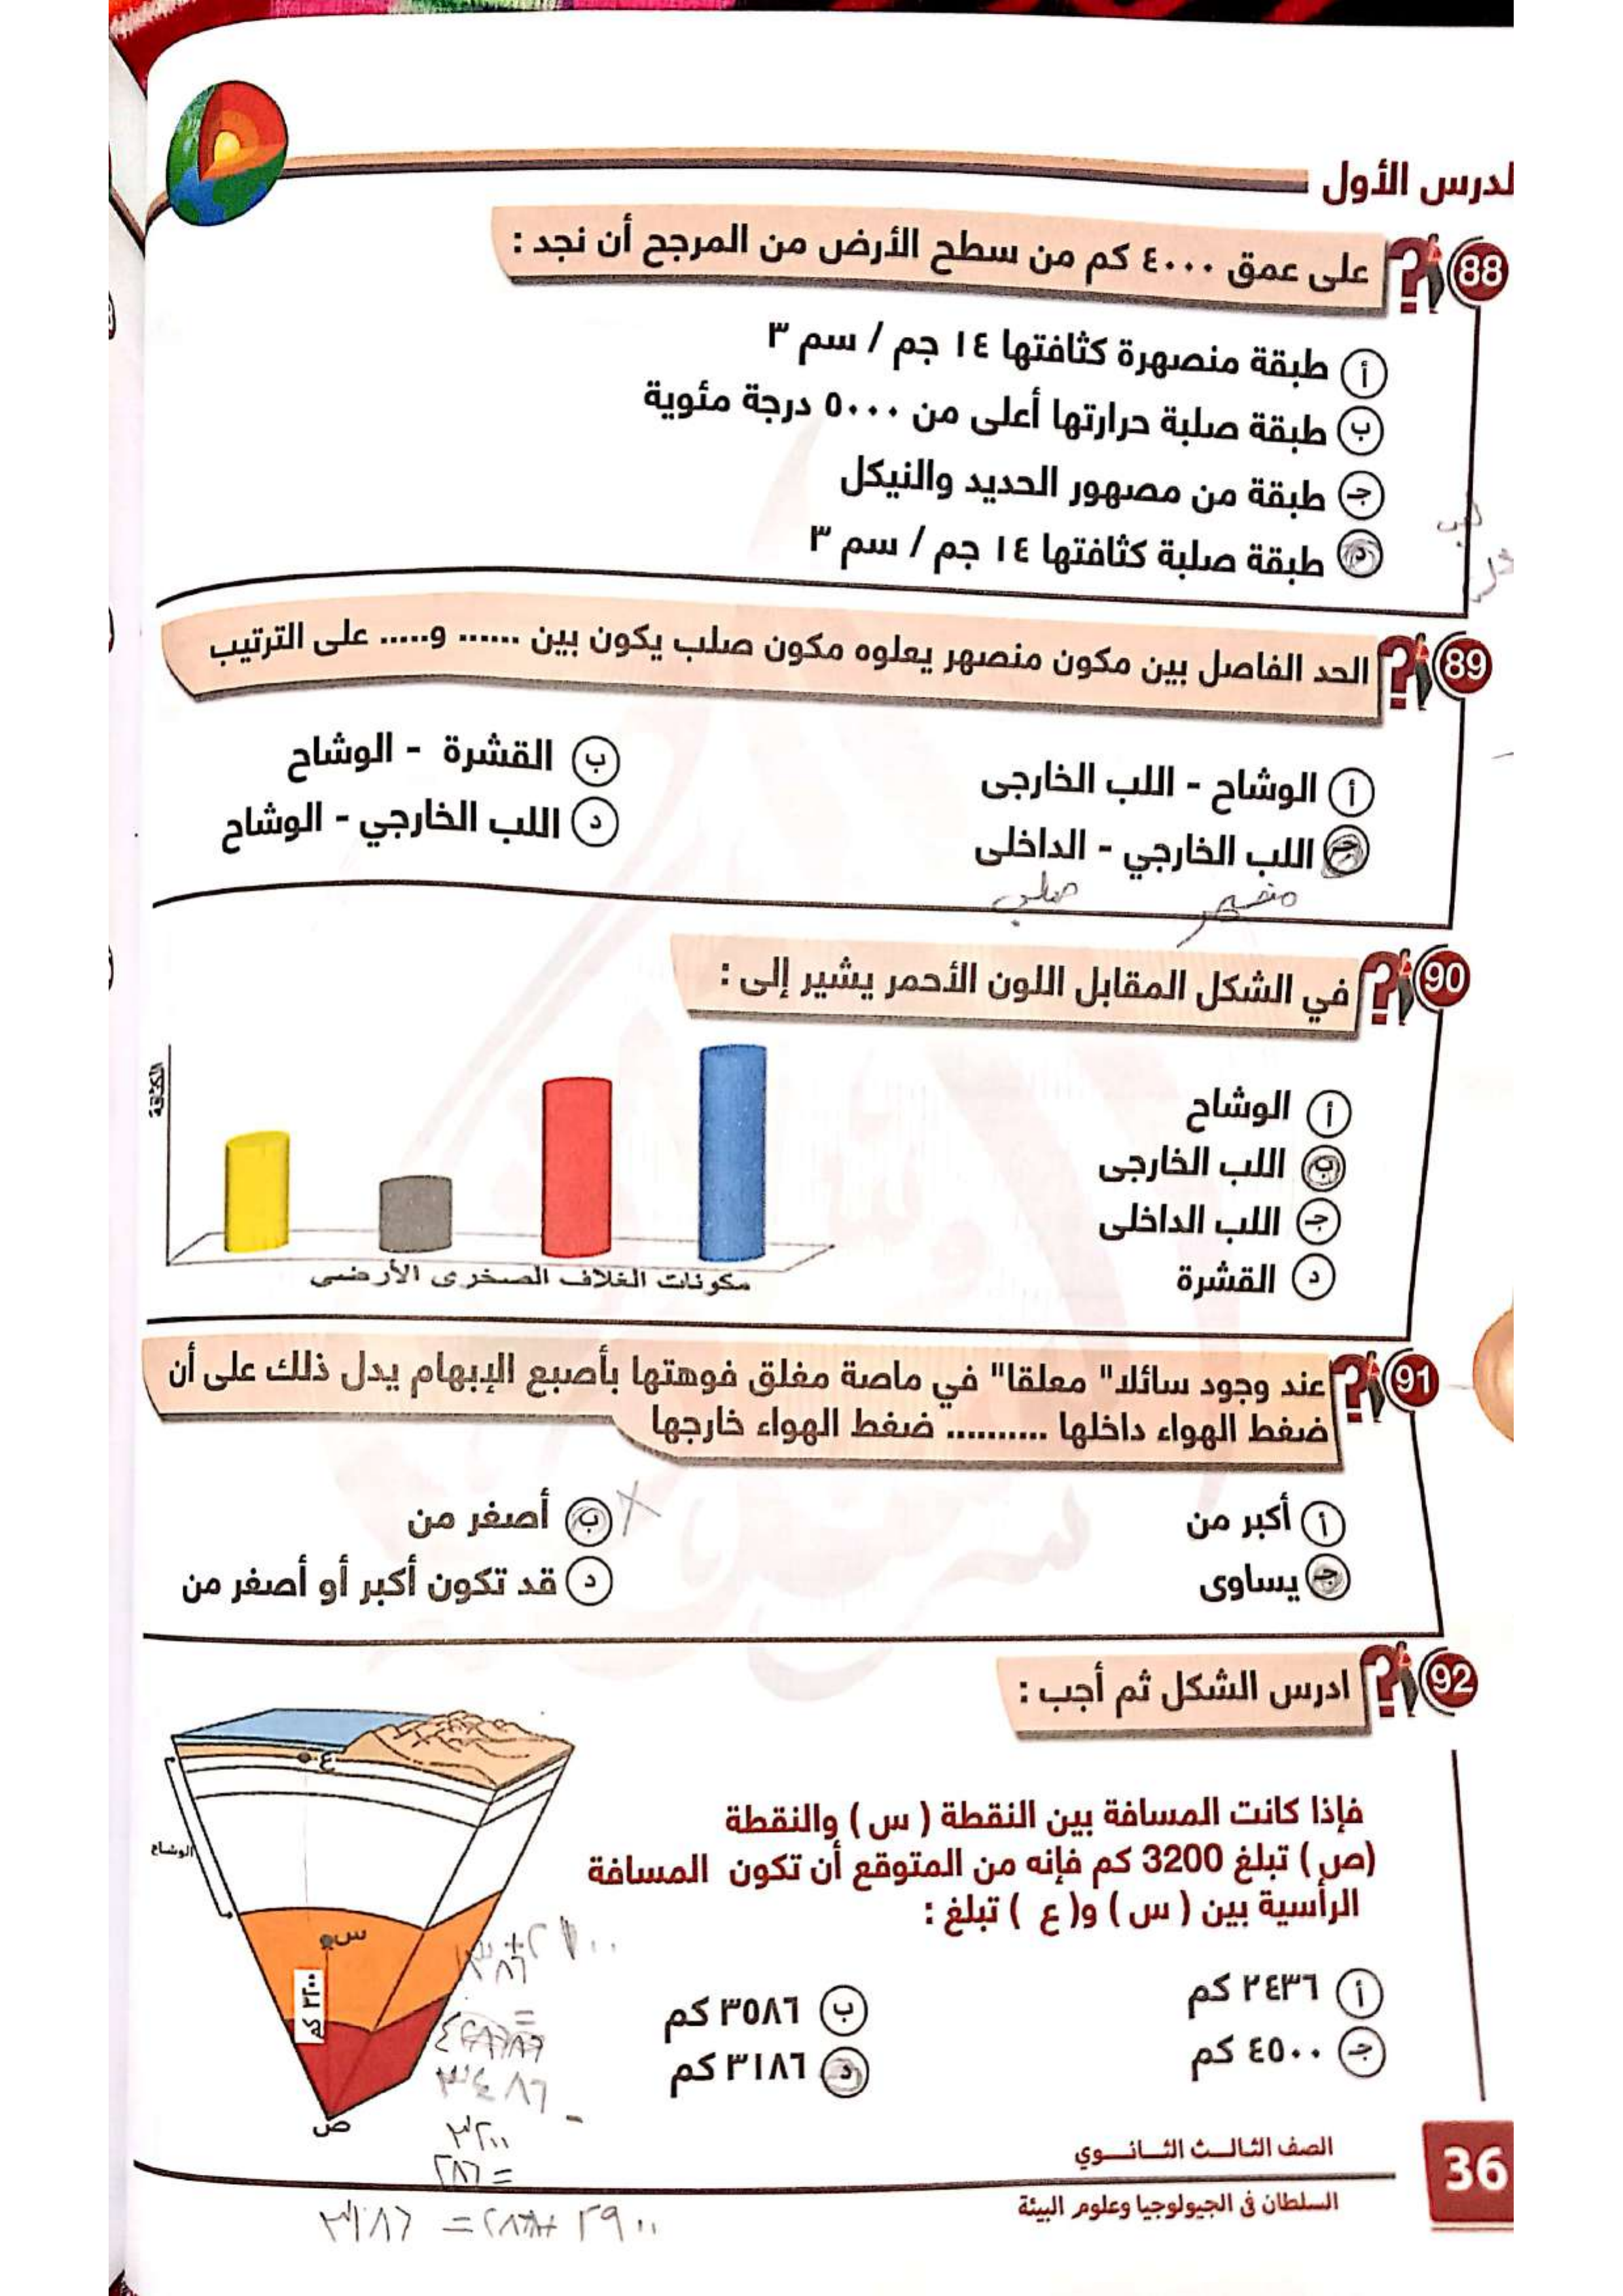 لدرس الأول
88 على عمق ٤٠٠٠ كم من سطح الأرض من المرجح أن نجد :
أ طبقة منصهرة كثافتها ١٤ جم / سم ٣
ب طبقة صلبة حرارتها أعلى من ٥٠٠٠ درجة مئوية
جـ طبقة من مصهور الحديد والنيكل
د طبقة صلبة كثافتها ١٤ جم / سم ٣
89 الحد الفاصل بين مكون منصهر يعلوه مكون صلب يكون بين ...... و..... على الترتيب
أ الوشاح - اللب الخارجى
ب القشرة - الوشاح
جـ اللب الخارجي - الداخلى
د اللب الخارجي - الوشاح
منصهر صلب
90 في الشكل المقابل اللون الأحمر يشير إلى :
أ الوشاح
ب اللب الخارجى
جـ اللب الداخلى
د القشرة
الكثافة
مكونات الغلاف الصخرى الأرضى
91 عند وجود سائلا" معلقا" في ماصة مغلق فوهتها بأصبع الإبهام يدل ذلك على أن
ضغط الهواء داخلها .......... ضغط الهواء خارجها
أ أكبر من
ب أصغر من
جـ يساوى
د قد تكون أكبر أو أصغر من
92 ادرس الشكل ثم أجب :
فإذا كانت المسافة بين النقطة ( س ) والنقطة
(ص ) تبلغ 3200 كم فإنه من المتوقع أن تكون المسافة
الرأسية بين ( س ) و( ع ) تبلغ :
أ ٢٤٣٦ كم
ب ٣٥٨٦ كم
جـ ٤٥٠٠ كم
د ٣١٨٦ كم
ع
الوشاح
س
٣٢٠٠ كم
ص
٣٤٨٦ -
٣٢٠٠
= ٢٨٦
٢٩٠٠ + ٢٨٦ = ٣١٨٦
الصف الثالث الثانوي
السلطان فى الجيولوجيا وعلوم البيئة
36